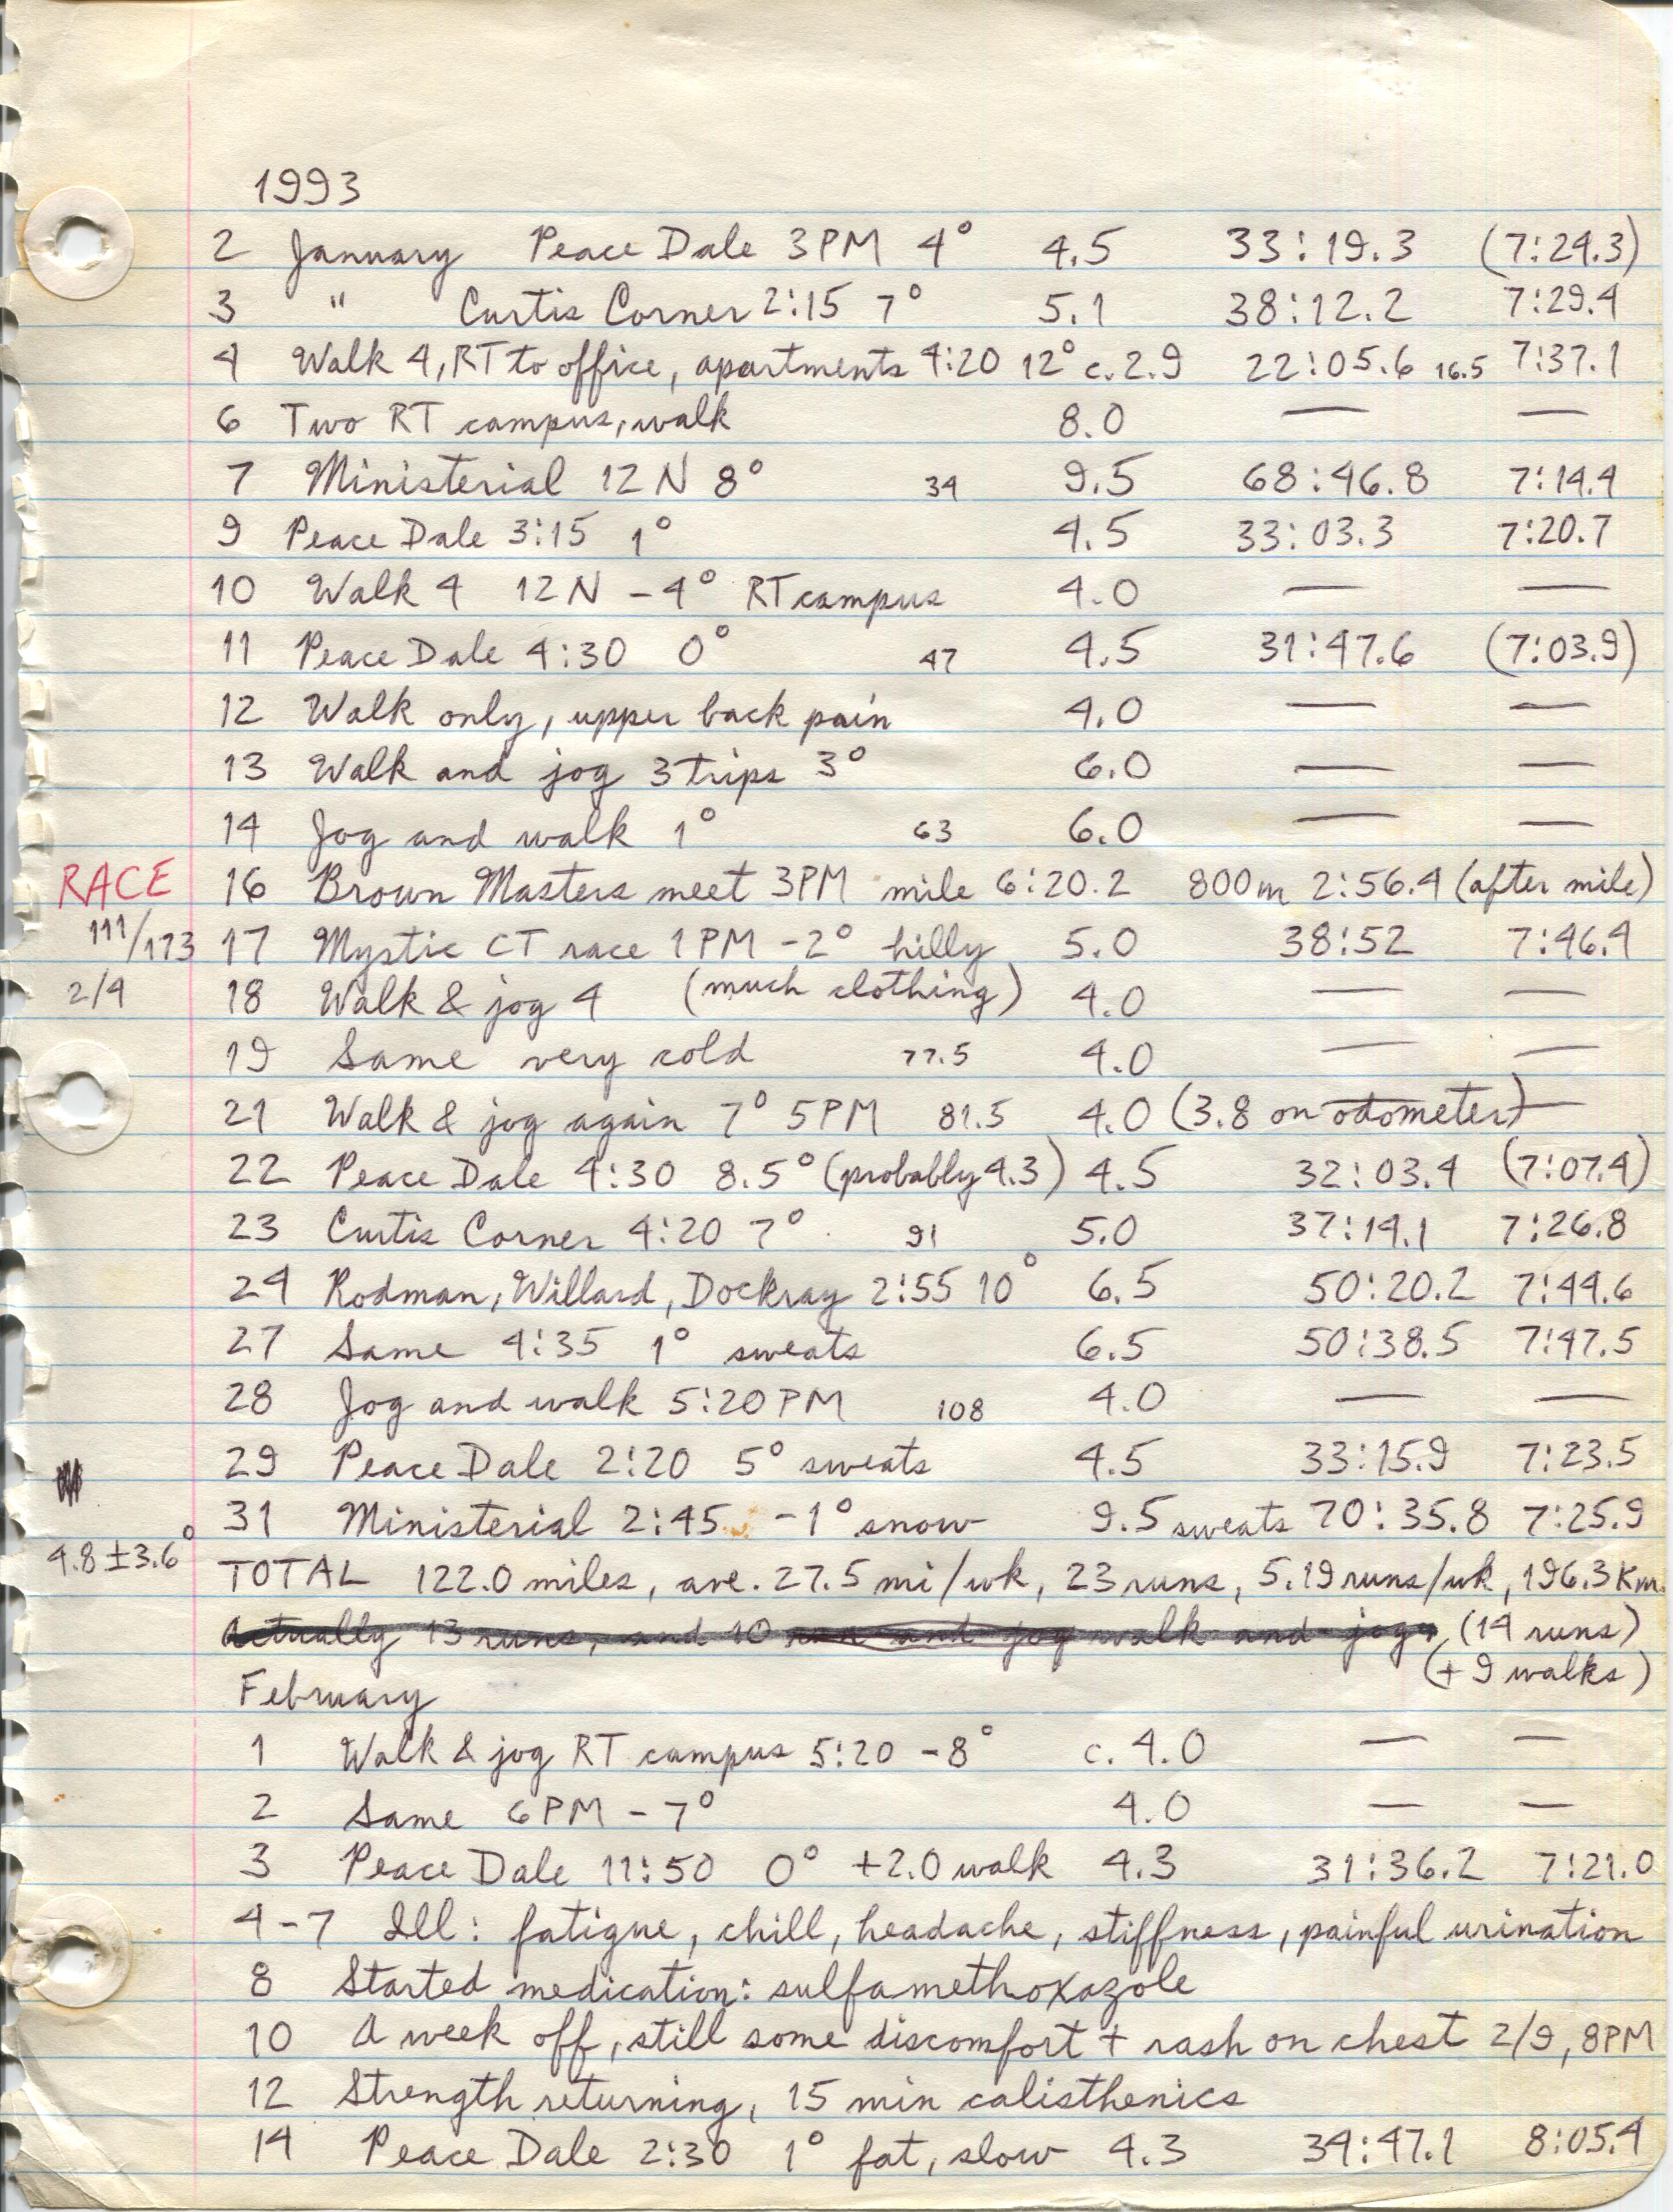 1993
2 January Peace Dale 3PM 4° 4.5 33:19.3 (7:24.3)
3 " Curtis Corner 2:15 7° 5.1 38:12.2 7:29.4
4 Walk 4, RT to office, apartments 4:20 12° c. 2.9 22:05.6 16.5 7:37.1
6 Two RT campus, walk 8.0 — —
7 Ministerial 12N 8° 34 9.5 68:46.8 7:14.4
9 Peace Dale 3:15 1° 4.5 33:03.3 7:20.7
10 Walk 4 12N -4° RT campus 4.0 — —
11 Peace Dale 4:30 0° 47 4.5 31:47.6 (7:03.9)
12 Walk only, upper back pain 4.0 — —
13 Walk and jog 3 trips 3° 6.0 — —
14 Jog and walk 1° 63 6.0 — —
RACE 16 Brown Masters meet 3PM mile 6:20.2 800m 2:56.4 (after mile)
111/173 17 Mystic CT race 1PM -2° hilly 5.0 38:52 7:46.4
2/4 18 Walk & jog 4 (much clothing) 4.0 — —
19 Same very cold 77.5 4.0 — —
21 Walk & jog again 7° 5PM 81.5 4.0 (3.8 on odometer) —
22 Peace Dale 4:30 8.5° (probably 4.3) 4.5 32:03.4 (7:07.4)
23 Curtis Corner 4:20 7° 91 5.0 37:14.1 7:26.8
24 Rodman, Willard, Dockray 2:55 10° 6.5 50:20.2 7:44.6
27 Same 4:35 1° sweats 6.5 50:38.5 7:47.5
28 Jog and walk 5:20 PM 108 4.0 — —
29 Peace Dale 2:20 5° sweats 4.5 33:15.9 7:23.5
31 Ministerial 2:45 -1° snow 9.5 sweats 70:35.8 7:25.9
4.8 ± 3.6° TOTAL 122.0 miles, ave. 27.5 mi/wk, 23 runs, 5.19 runs/wk, 196.3 Km.
Actually 13 runs, and 10 run and jog walk and jogs (14 runs)
(+ 9 walks)
February
1 Walk & jog RT campus 5:20 -8° c. 4.0 — —
2 Same 6PM -7° 4.0 — —
3 Peace Dale 11:50 0° +2.0 walk 4.3 31:36.2 7:21.0
4-7 Ill: fatigue, chill, headache, stiffness, painful urination
8 Started medication: sulfamethoxazole
10 A week off, still some discomfort + rash on chest 2/9, 8PM
12 Strength returning, 15 min calisthenics
14 Peace Dale 2:30 1° fat, slow 4.3 34:47.1 8:05.4